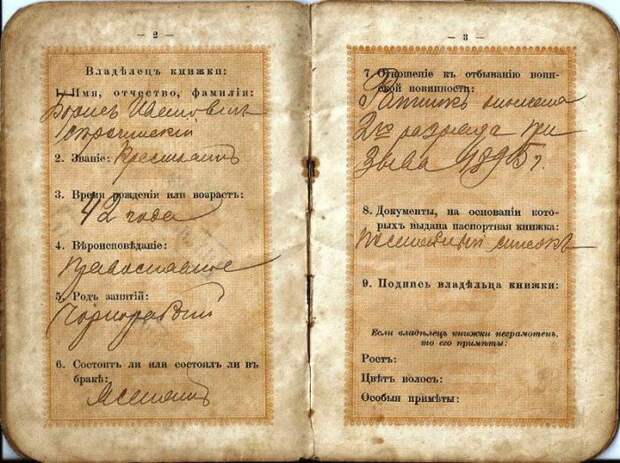 — 2 —
Владѣлецъ книжки:
1. Имя, отчество, фамилія:
2. Званіе: Крестьянинъ
3. Время рожденія или возрастъ:
42 года
4. Вѣроисповѣданіе:
Православное
5. Родъ занятій:
Чернорабочій
6. Состоитъ ли или состоялъ ли въ
бракѣ:
Женатъ
— 3 —
7. Отношеніе къ отбыванію воин-
ской повинности:
Ратникъ ополченія
2го разряда при
зыва 1895 г.
8. Документы, на основаніи кото-
рыхъ выдана паспортная книжка:
Посемейный списокъ
9. Подпись владѣльца книжки:
Если владѣлецъ книжки неграмотенъ,
то его примѣты:
Ростъ:
Цвѣтъ волосъ:
Особыя примѣты: